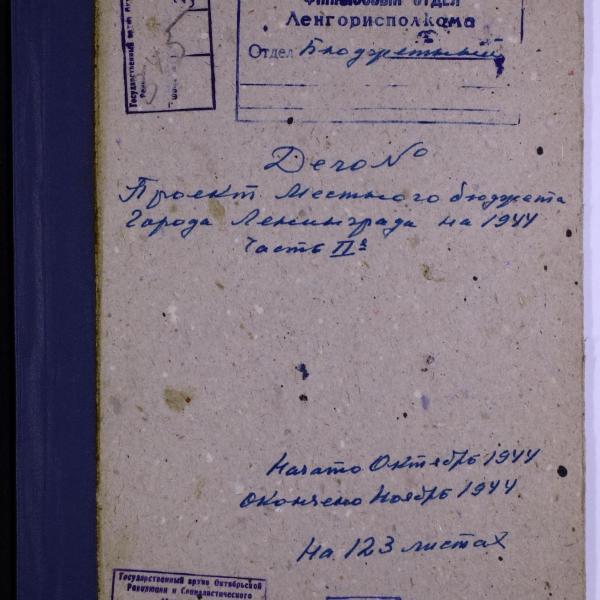 ФИНАНСОВЫЙ ОТДЕЛ
Ленгорисполкома
Отдел Бюджетный
Государственный архив
Дело №
Проект Местного бюджета
Города Ленинграда на 1944
Часть IIя
Начато Октябрь 1944
Окончено Ноябрь 1944
На 123 листах
Государственный архив Октябрьской
Революции и Социалистического